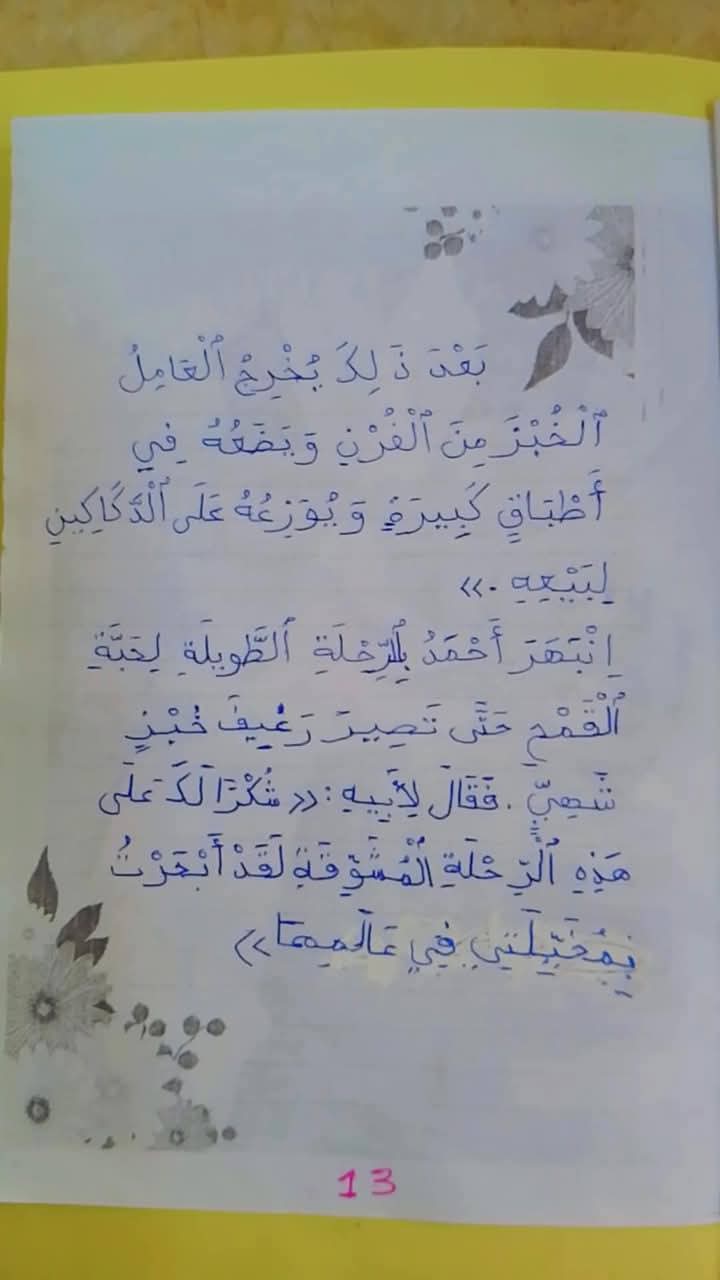 بَعْدَ ذَلِكَ يُخْرِجُ ٱلْعَامِلُ
ٱلْخُبْزَ مِنَ ٱلْفُرْنِ وَيَضَعُهُ فِي
أَطْبَاقٍ كَبِيرَةٍ وَيُوَزِعُهُ عَلَى ٱلْدَّكَاكِينِ
لِبَيْعِهِ.»
اِنْبَهَرَ أَحْمَدُ بِٱلرِّحْلَةِ ٱلطَّوِيلَةِ لِحَبَّةِ
ٱلْقَمْحِ حَتَّى تَصِيرَ رَغِيفَ خُبْزٍ
شَهِيٍّ. فَقَالَ لِأَبِيهِ: «شُكْرًا لَكَ عَلَى
هَذِهِ ٱلرِّحْلَةِ ٱلْمُشَوِّقَةِ لَقَدْ أَبْحَرْتُ
بِمُخَيِّلَتِي فِي عَالَمِهَا»
13